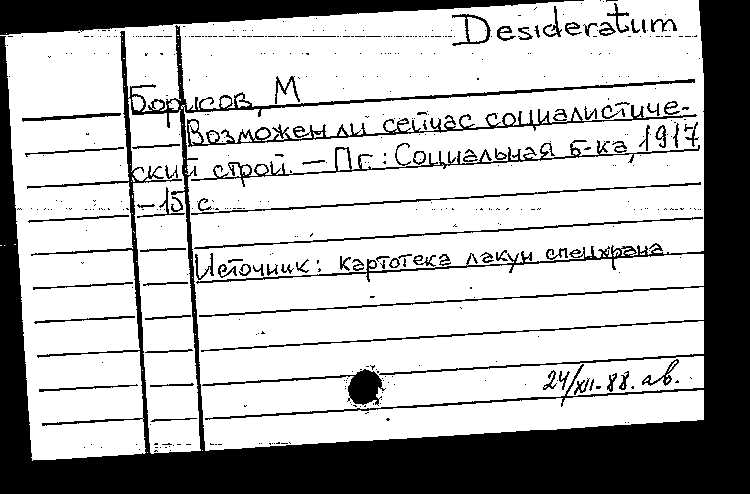 Desideratum
Борисов, М
Возможен ли сейчас социалистиче-
ский строй. — Пг.: Социальная б-ка, 1917
— 15 с.
Источник: картотека лакун спецхрана.
24/XII-88. ав.